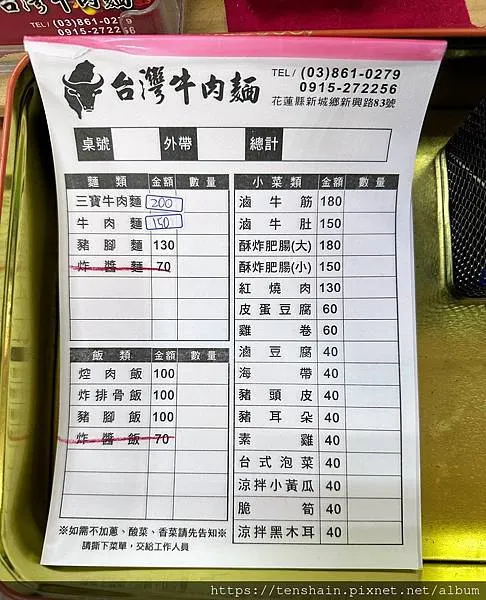 台灣牛肉麵
TEL / (03)861-0279
0915-272256
台灣牛肉麵
TEL / (03)861-0279
0915-272256
花蓮縣新城鄉新興路83號
桌號 外帶 總計
麵類 金額 數量
三寶牛肉麵 200
牛肉麵 150
豬腳麵 130
炸醬麵 70
飯類 金額 數量
焢肉飯 100
炸排骨飯 100
豬腳飯 100
炸醬飯 70
小菜類 金額 數量
滷牛筋 180
滷牛肚 150
酥炸肥腸(大) 180
酥炸肥腸(小) 150
紅燒肉 130
皮蛋豆腐 60
雞卷 60
滷豆腐 40
海帶 40
豬頭皮 40
豬耳朵 40
素雞 40
台式泡菜 40
涼拌小黃瓜 40
脆筍 40
涼拌黑木耳 40
※如需不加蔥、酸菜、香菜請先告知※
請撕下菜單，交給工作人員
https://tenshain.pixnet.net/album